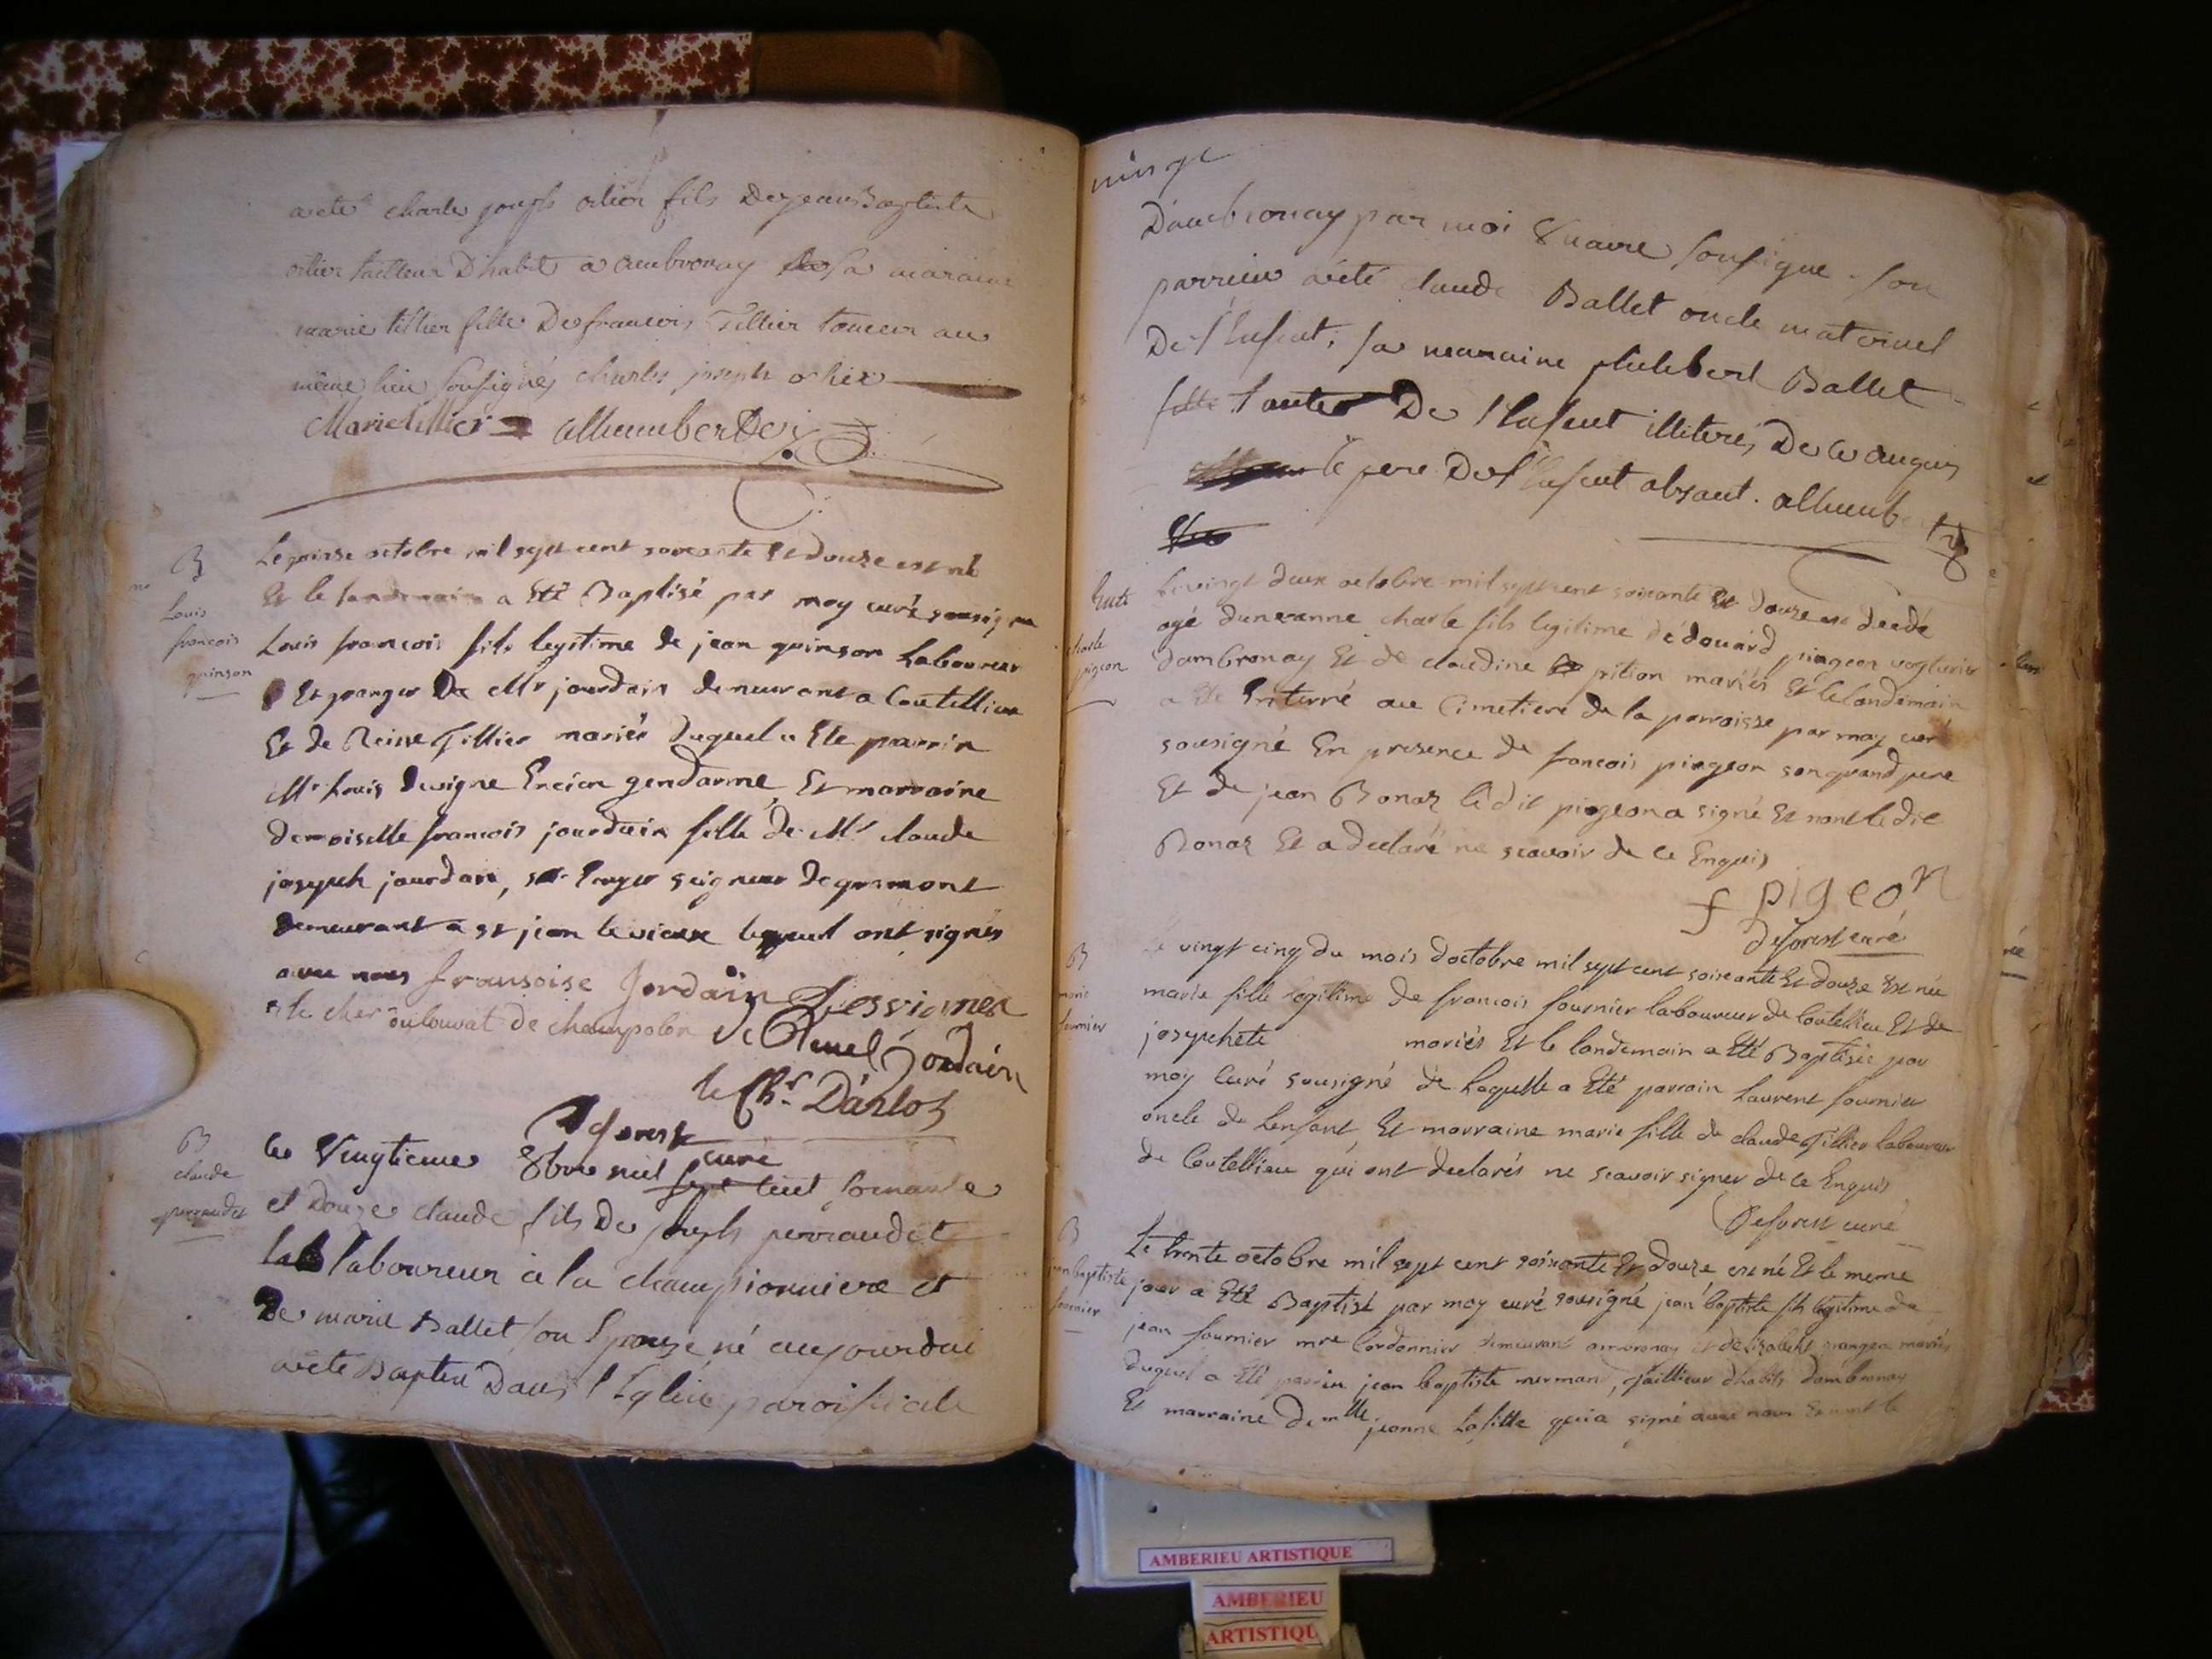 a été charle joseph orlier fils De jean Baptiste
orlier tailleur D'habit a ambronay sa maraine
marie tillier fille De francois Tillier au
même lieu soussignés charles joseph orlier
Marie tillier alhumbert
B
Louis
francois
quinson
Le quinse octobre mil sept cent soixante Et douze est né
Et le landemain a Eté Baptisé par moy curé sousigné
Louis francois fils legitime de jean quinson Laboureur
Et granger De Mr jourdain demeurant a Coutellieu
Et de Reine Tillier mariés duquel a Ete parrin
Mr Louis devigne Encien gendarme, Et marraine
demoiselle francois jourdain fille de Mr claude
josepch jourdain, seigneur de gramont
demeurant a st jean levieux lequel ont signés
avec nous fransoise Jordain
le cher oulouvat de champolon Jordain
le Chr. D'arloz
Deforest
curé
B
claude
perraudet
le Vingtieme 8bre mil sept cent soixante
et Douze claude fils De joseph perraudet
laboureur à la championniere et
De marie Ballet son Epouse né aujourdui
a été Baptisé Dans l'Eglise paroissiale
D'ambronay par moi Vicaire soussigné. son
parrein a été claude Ballet oncle maternel
De l'Enfant, sa maraine philibert Ballet
tante De l'Enfent illiterés De ce enquis
le pere De l'Enfent absant. alhumbert
Ente
charle
pigeon
Le vingt deux octobre mil sept cent soixante Et douze est decedé
agé dune anne charle fils legitime d'édouard piageon vogturier
dambronay Et de claudine pition mariés Et le landemain
a Ete Enterré au Cimetiere de la parroisse par moy curé
sousigné En presence de francois piageon son grand pere
Et de jean Bonaz le dit piogeon a signé Et nont le dit
Bonaz Et a declaré ne scavoir de ce Enquis
f pigeon
deforest curé
B
marie
fournier
Le vingt cinq du mois doctobre mil sept cent soixante Et douze Est née
marie fille legitime de francois fournier laboureur de Coutellieu Et de
josepchete mariés Et le landemain a Eté Baptisée par
moy Curé sousigné de Laquelle a Eté parrain Laurent fournier
oncle de Lenfant, Et marraine marie fille de claude Tillier laboureur
de Coutellieu qui ont declarés ne scavoir signer de ce Enquis
Deforest curé
B
jean baptiste
fournier
Le trente octobre mil sept cent soixante Et douze est né Et le meme
jour a Eté Baptisé par moy curé sousigné jean baptiste fils legitime de
jean fournier mre Cordonnier demeurant ambronay et de Elizabeht grangea mariés
duquel a Eté parrin jean baptiste mermand, Taillieur dhabits dambronay
Et marraine Demlle jeanne Lafitte qui a signé avec nous Et nont le
AMBERIEU ARTISTIQUE
AMBERIEU
ARTISTIQU